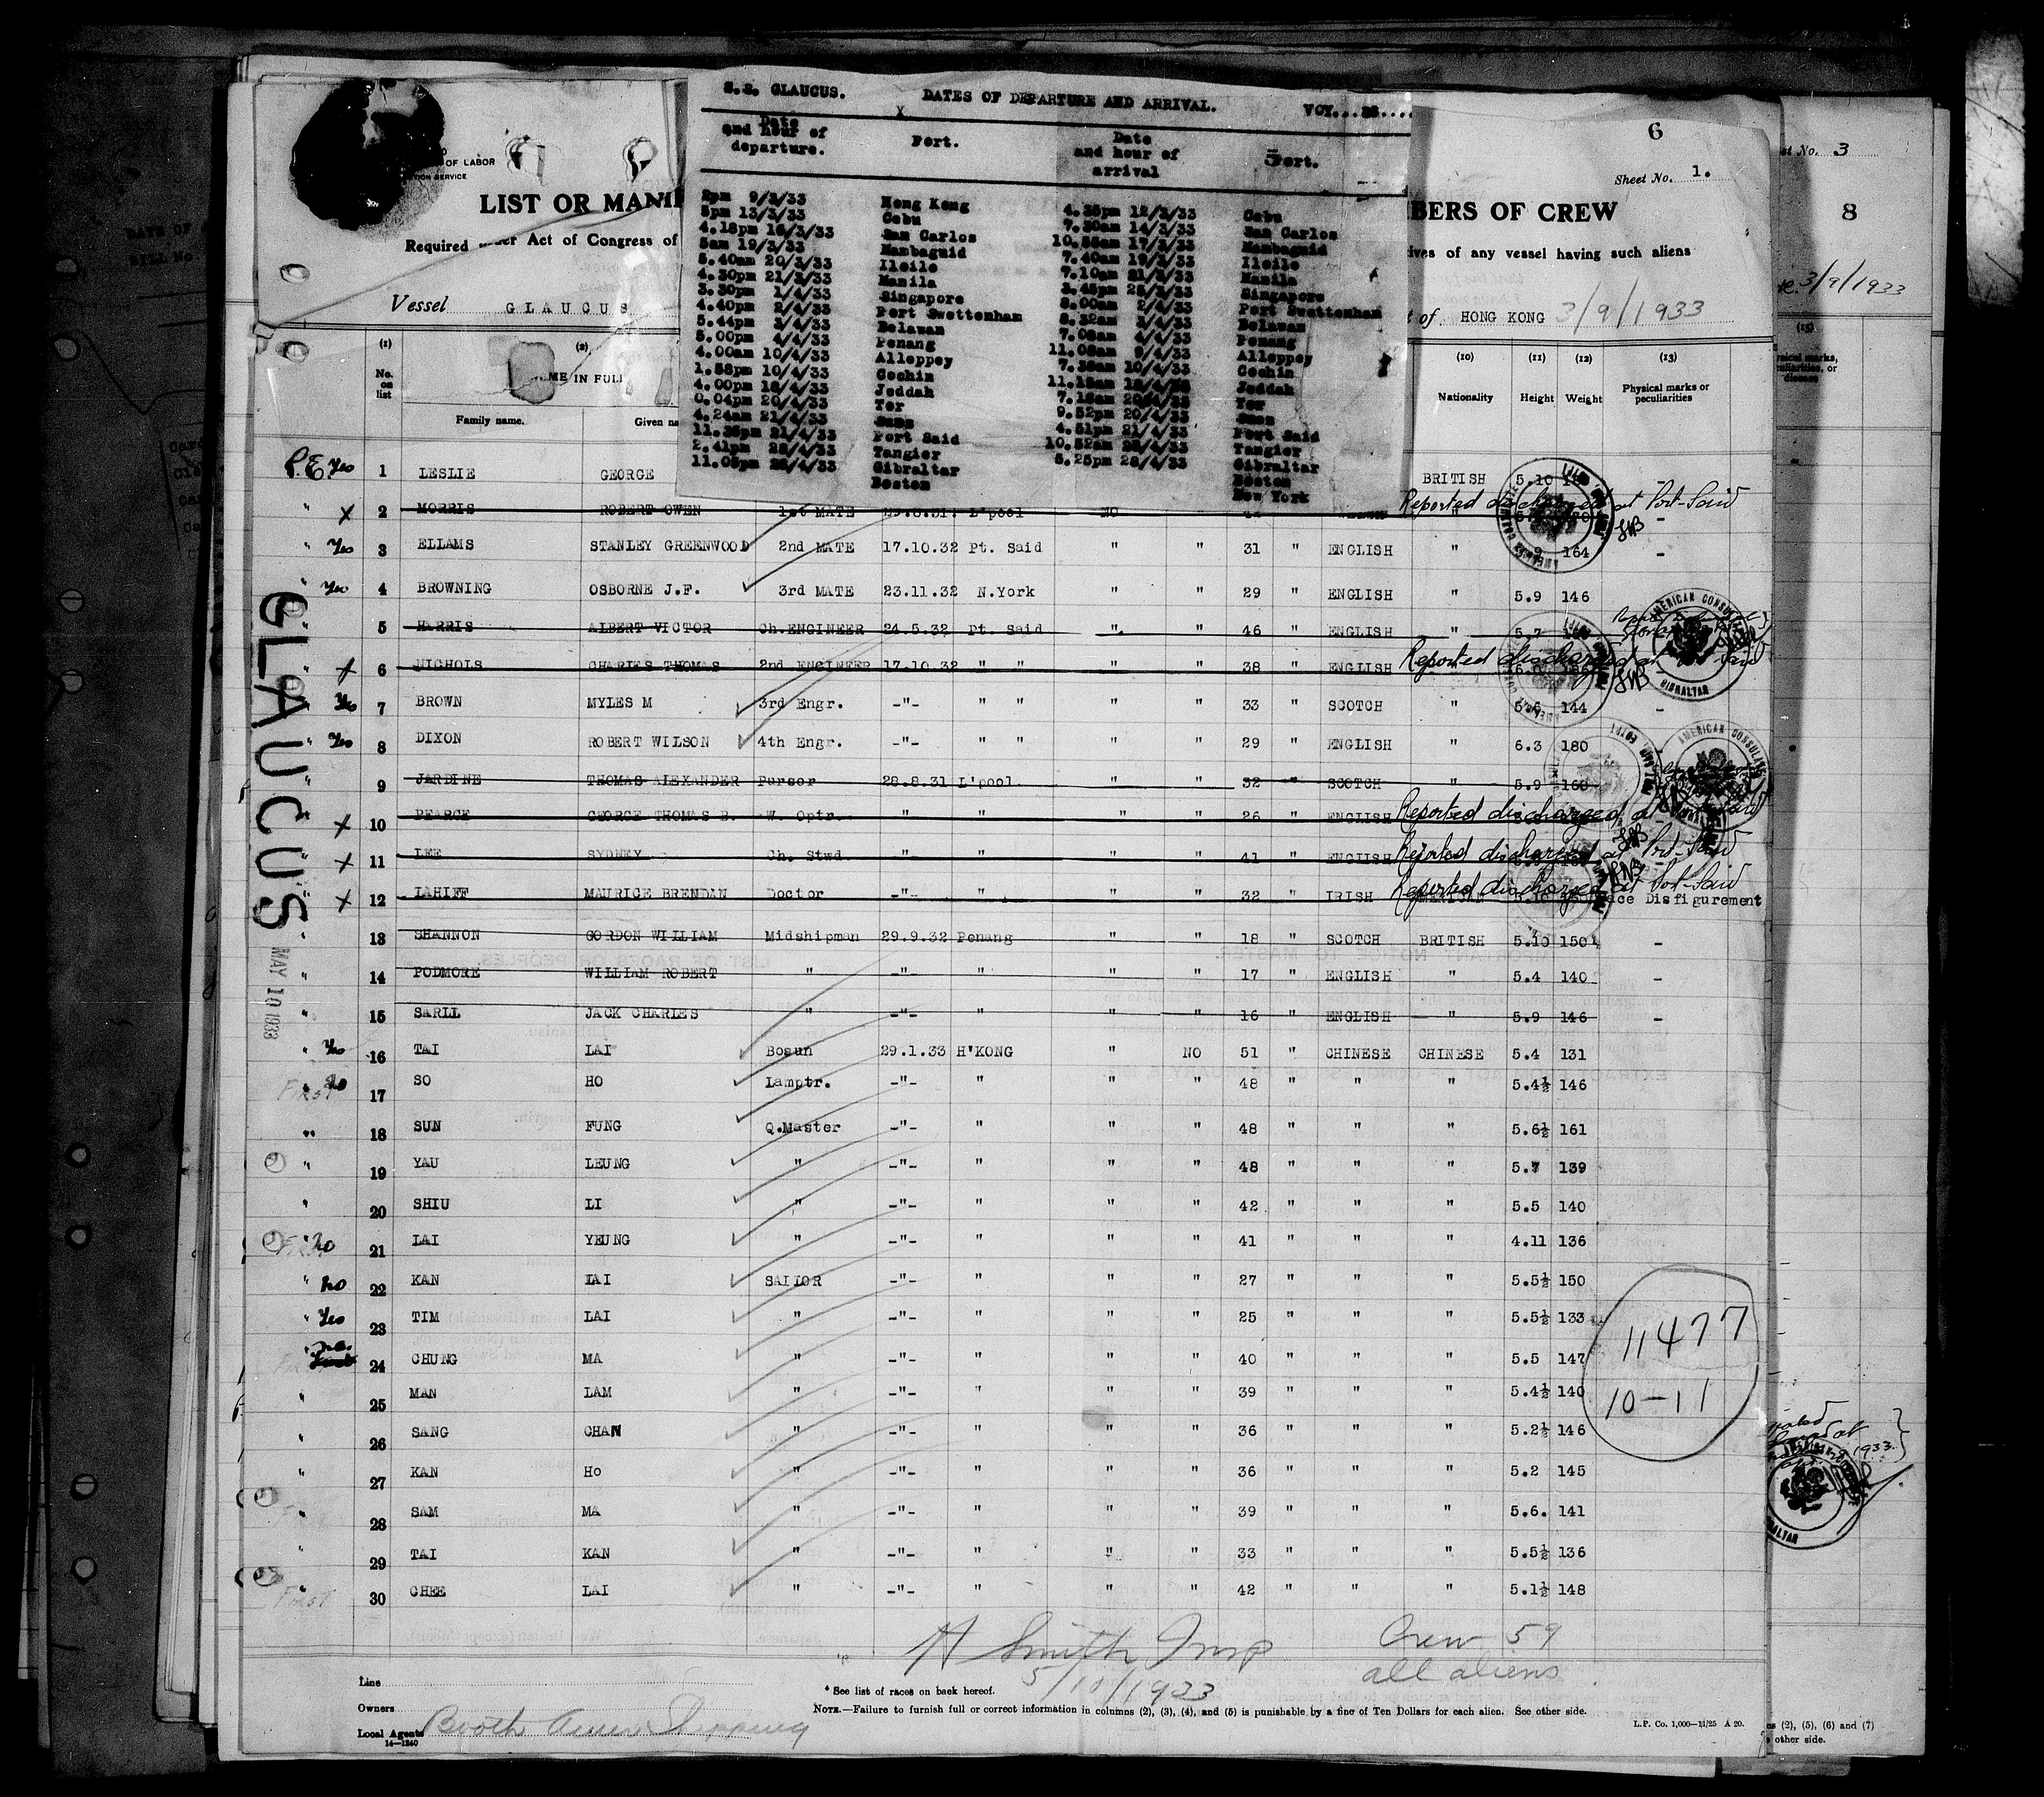 S.S. GLAUCUS. DATES OF DEPARTURE AND ARRIVAL. VOY...
Date and hour of departure. Port. Date and hour of arrival Port.
2pm 9/3/33 Hong Kong 4.35pm 12/3/33 Cebu
5pm 13/3/33 Cebu 7.30am 14/3/33 San Carlos
4.18pm 16/3/33 San Carlos 10.55am 17/3/33 Mambaguid
5am 19/3/33 Mambaguid 7.40am 19/3/33 Iloilo
5.40am 20/3/33 Iloilo 7.10am 21/3/33 Manila
4.30pm 21/3/33 Manila 3.45pm 25/3/33 Singapore
3.30pm 1/4/33 Singapore 8.00am 2/4/33 Port Swettenham
4.40pm 2/4/33 Port Swettenham 8.32am 3/4/33 Belawan
5.44pm 3/4/33 Belawan 7.08am 4/4/33 Penang
5.00pm 4/4/33 Penang 11.08am 9/4/33 Alleppey
4.00am 10/4/33 Alleppey 7.38am 10/4/33 Cochin
1.58pm 10/4/33 Cochin Jeddah
4.00pm 18/4/33 Jeddah Tor
0.04pm 20/4/33 Tor 9.52pm 20/4/33 Suez
4.24am 21/4/33 Suez 4.51pm 21/4/33 Port Said
11.36pm 21/4/33 Port Said 10.52am 28/4/33 Tangier
2.41pm 28/4/33 Tangier 5.25pm 28/4/33 Gibraltar
11.05pm 28/4/33 Gibraltar Boston
Boston New York
6
Sheet No. 1.
OF LABOR
SERVICE
LIST OR MANI
BERS OF CREW
Required under Act of Congress of
ives of any vessel having such aliens
Vessel GLAUCUS
of HONG KONG 3/9/1933
(1) (2) (10) (11) (12) (13)
No. on list NAME IN FULL Family name. Given Nationality Height Weight Physical marks or peculiarities
P.E. Yes 1 LESLIE GEORGE BRITISH 5.10
" X 2 MORRIS ROBERT OWEN 1st MATE L'pool NO Reported discharged at Port-Said
" Yes 3 ELLAMS STANLEY GREENWOOD 2nd MATE 17.10.32 Pt. Said " " 31 " ENGLISH " 164 -
" Yes 4 BROWNING OSBORNE J.F. 3rd MATE 23.11.32 N.York " " 29 " ENGLISH " 5.9 146
" 5 HARRIS ALBERT VICTOR Ch.ENGINEER 24.5.32 Pt. Said " " 46 " ENGLISH " 5.7
" X 6 NICHOLS CHARLES THOMAS 2nd ENGINEER 17.10.32 " " " " 38 " ENGLISH Reported discharged at Port Said
" Yes 7 BROWN MYLES M 3rd Engr. -"- " " " " 33 " SCOTCH " 5.6 144 -
" Yes 8 DIXON ROBERT WILSON 4th Engr. -"- " " " " 29 " ENGLISH " 6.3 180
" 9 JARDINE THOMAS ALEXANDER Purser 28.8.31 L'pool. " " 32 " SCOTCH " 5.9 160
" X 10 PEARCE GEORGE THOMAS B. W. Optr. " " " " 26 " ENGLISH Reported discharged at Port Said
" X 11 LEE SYDNEY Ch. Stwd. " " " " 41 " ENGLISH Reported discharged at Port-Said
" X 12 LAHIFF MAURICE BRENDAN Doctor -"- " " " 32 " IRISH Reported discharged at Port-Said Face Disfigurement
" 13 SHANNON GORDON WILLIAM Midshipman 29.9.32 Penang " " 18 " SCOTCH BRITISH 5.10 150 -
" 14 PODMORE WILLIAM ROBERT " -"- " " " 17 " ENGLISH " 5.4 140 -
" 15 SARLL JACK CHARLES " -"- " " " 16 " ENGLISH " 5.9 146 -
" Yes 16 TAI LAI Bosun 29.1.33 H'KONG " NO 51 " CHINESE CHINESE 5.4 131
First " no 17 SO HO Lamptr. -"- " " " 48 " " " 5.4½ 146
" 18 SUN FUNG Q.Master -"- " " " 48 " " " 5.6½ 161
" 19 YAU LEUNG " -"- " " " 48 " " " 5.7 139
" 20 SHIU LI " -"- " " " 42 " " " 5.5 140
First " no 21 LAI YEUNG " -"- " " " 41 " " " 4.11 136
" no 22 KAN LAI SAILOR -"- " " " 27 " " " 5.5½ 150
" Yes 23 TIM LAI " -"- " " " 25 " " " 5.5½ 133
" no 24 CHUNG MA " -"- " " " 40 " " " 5.5 147
" 25 MAN LAM " -"- " " " 39 " " " 5.4½ 140
" 26 SANG CHAN " -"- " " " 36 " " " 5.2½ 146
" 27 KAN Ho " -"- " " " 36 " " " 5.2 145
" 28 SAM MA " -"- " " " 39 " " " 5.6. 141
" 29 TAI KAN " -"- " " " 33 " " " 5.5½ 136
First " 30 CHEE LAI " -"- " " " 42 " " " 5.1½ 148
GLAUCUS
MAY 10 1933
11477
10-11
AMERICAN CONSULATE
GIBRALTAR
H Smith Insp
5/10/1933
Crew 59
all aliens
Line
* See list of races on back hereof.
Owners
NOTE.—Failure to furnish full or correct information in columns (2), (3), (4), and (5) is punishable by a fine of Ten Dollars for each alien. See other side.
Local Agents Booth Amer Shipping
14—1240
L.P. Co. 1,000—11/25 A 20.
et No. 3
8
3/9/1933
(13)
1933.
ns (2), (5), (6) and (7)
other side.